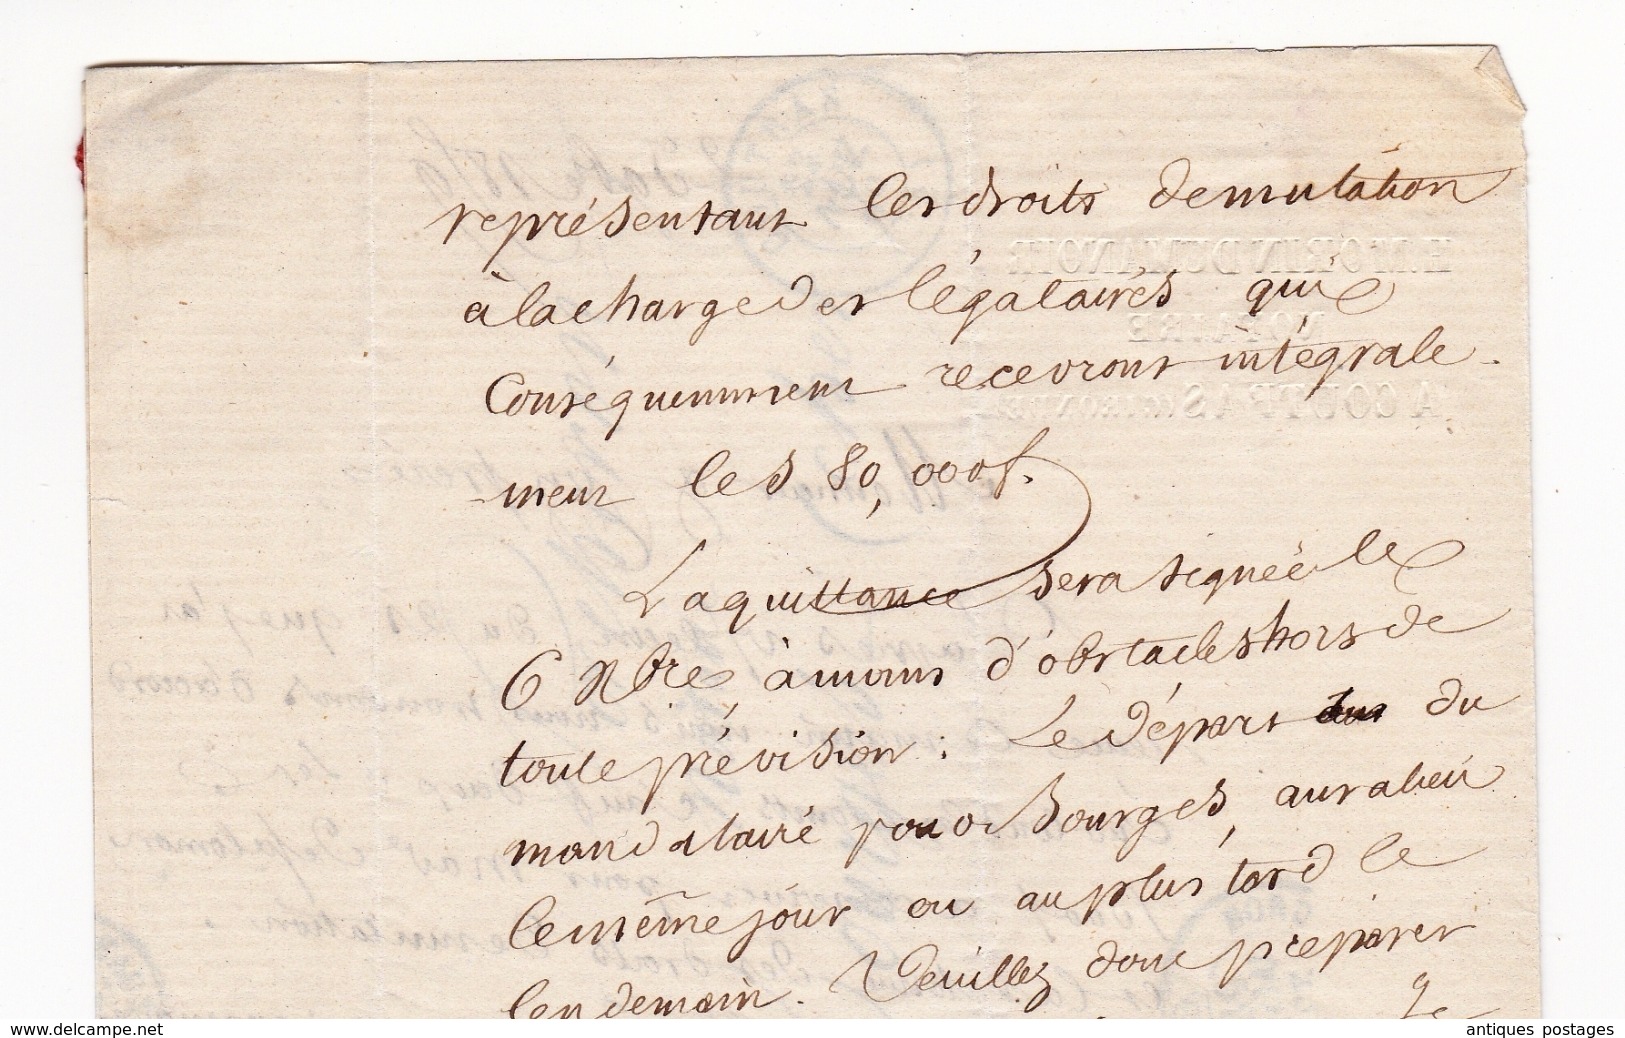 représentant les droits de mutation
à la charge des légataires qui
conséquemment recevront intégrale-
ment les 80,000f.
La quittance sera signée le
6 Xbre, à moins d'obstacles hors de
toute prévision. Le départ du
mandataire pour Bourges, aura lieu
le même jour ou au plus tard le
lendemain. Veuillez donc préparer
E. MORIN DUMANOIR
NOTAIRE
A COUTRAS (GIRONDE)
delcampe.net
antiques postages